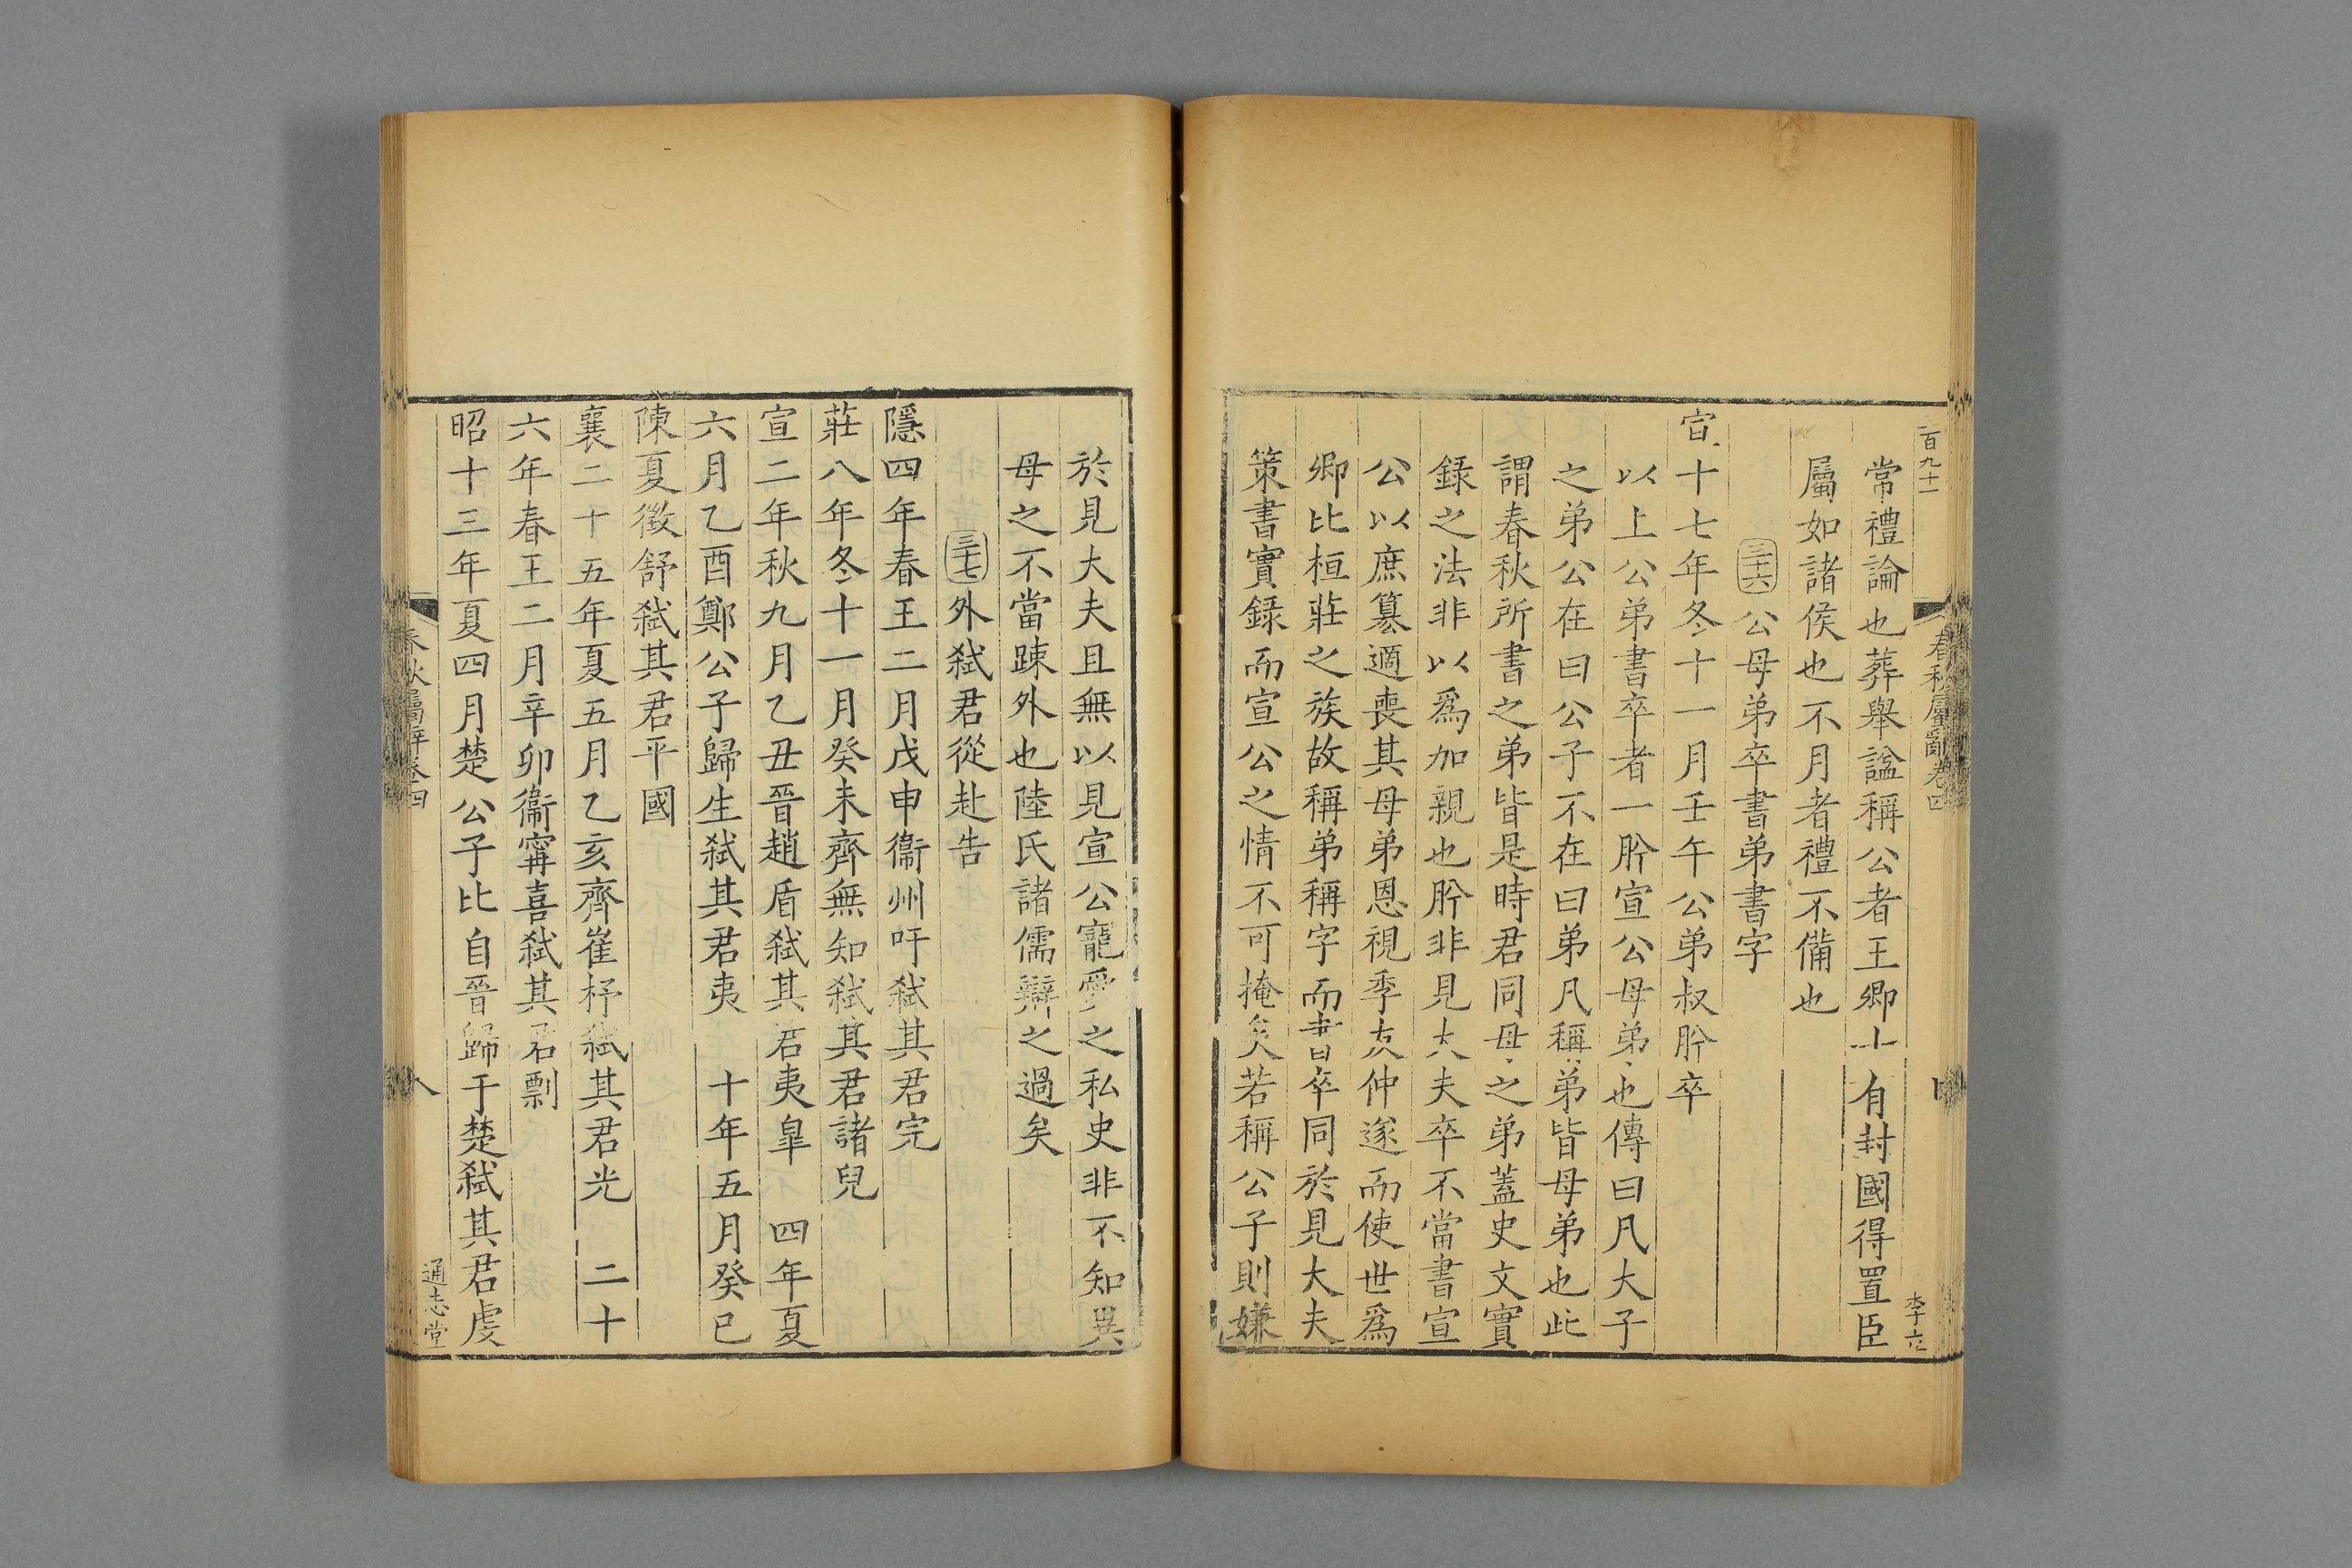 百九十一
春秋屬辭卷四
常禮論也葬舉諡稱公者王卿士有封國得置臣
屬如諸侯也不月者禮不備也
三十六公母弟卒書弟書字
宣十七年冬十一月壬午公弟叔肸卒
以上公弟書卒者一肸宣公母弟也傳曰凡大子
之弟公在曰公子不在曰弟凡稱弟皆母弟也此
謂春秋所書之弟皆是時君同母之弟蓋史文實
錄之法非以爲加親也肸非見大夫卒不當書宣
公以庶簒適喪其母弟恩視季友仲遂而使世爲
卿比桓莊之族故稱弟稱字而書卒同於見大夫
策書實錄而宣公之情不可掩矣若稱公子則嫌
於見大夫且無以見宣公寵愛之私史非不知異
母之不當踈外也陸氏諸儒辯之過矣
三十七外弑君從赴告
隱四年春王二月戊申衞州吁弑其君完
莊八年冬十一月癸未齊無知弑其君諸兒
宣二年秋九月乙丑晉趙盾弑其君夷臯 四年夏
六月乙酉鄭公子歸生弑其君夷 十年五月癸巳
陳夏徵舒弑其君平國
襄二十五年夏五月乙亥齊崔杼弑其君光 二十
六年春王二月辛卯衞甯喜弑其君剽
昭十三年夏四月楚公子比自晉歸于楚弑其君虔
春秋屬辭卷四
八
通志堂